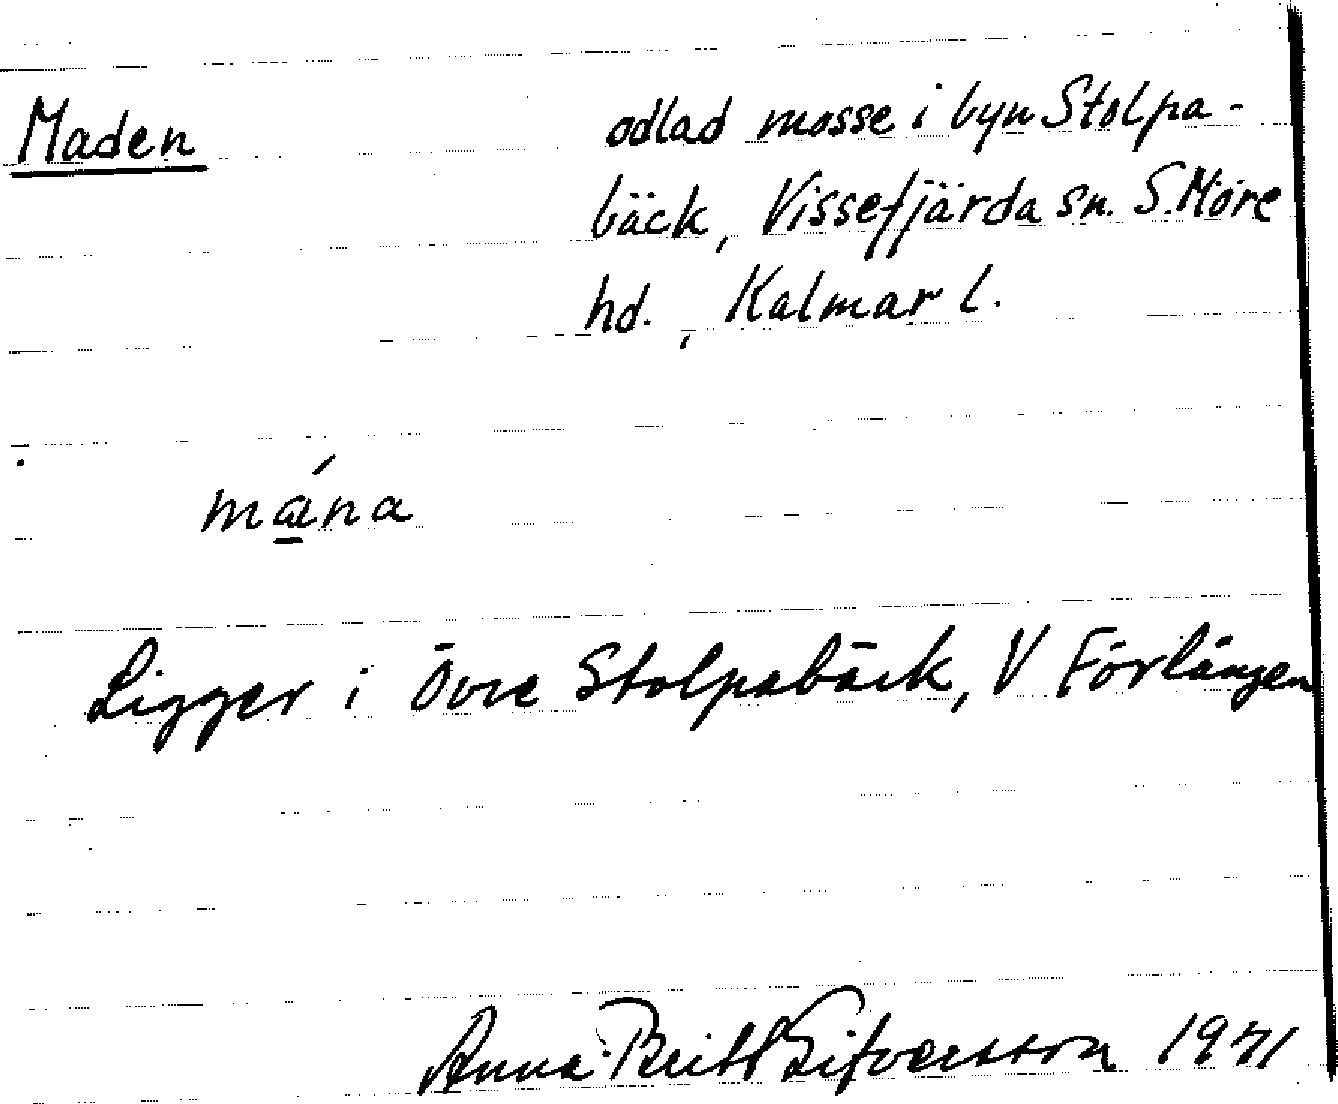 Maden
odlad mosse i byn Stolpa-
bäck, Vissefjärda sn. S. Möre
hd., Kalmar l.
má̱na
Ligger i Övre Stolpabäck, V Förlängen
Anna-Britt Sifversson 1971